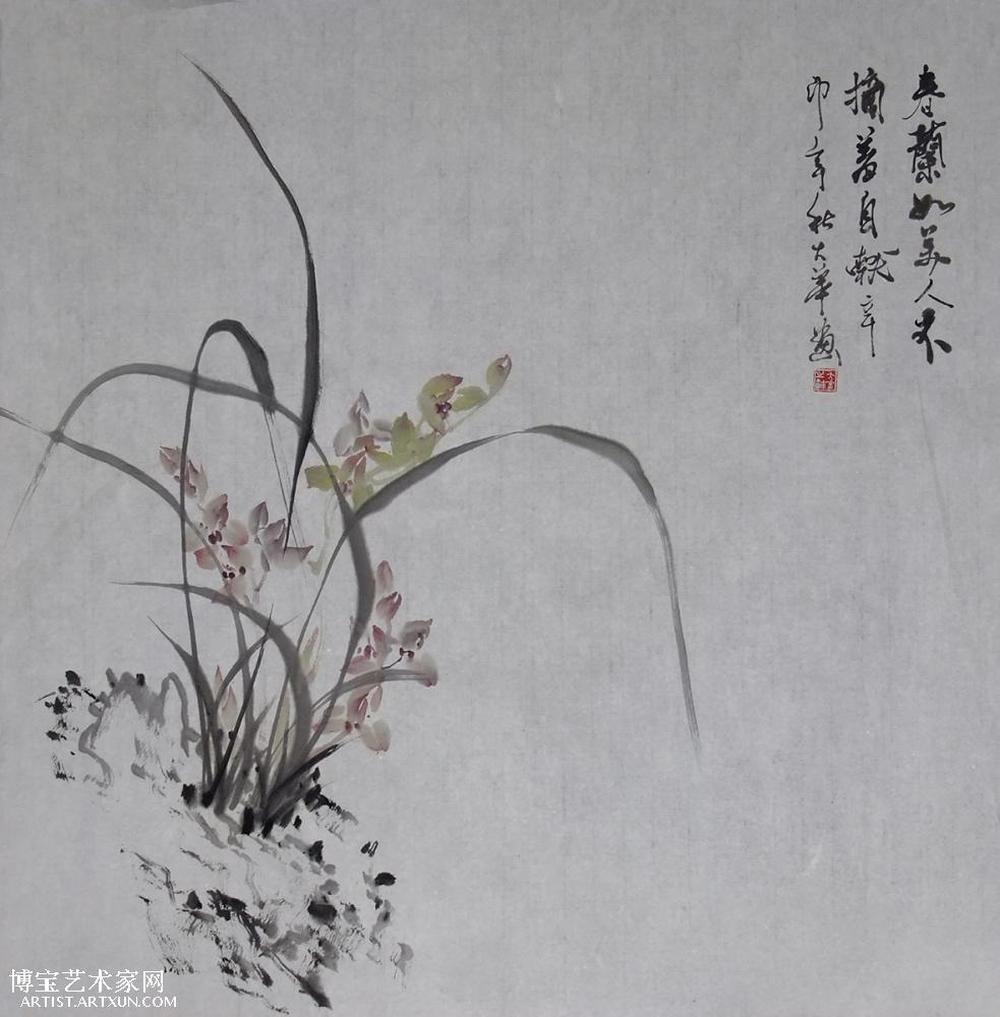 春蘭如美人不
摘羞自獻辛
卯年秋大華畫
博宝艺术家网
ARTIST.ARTXUN.COM